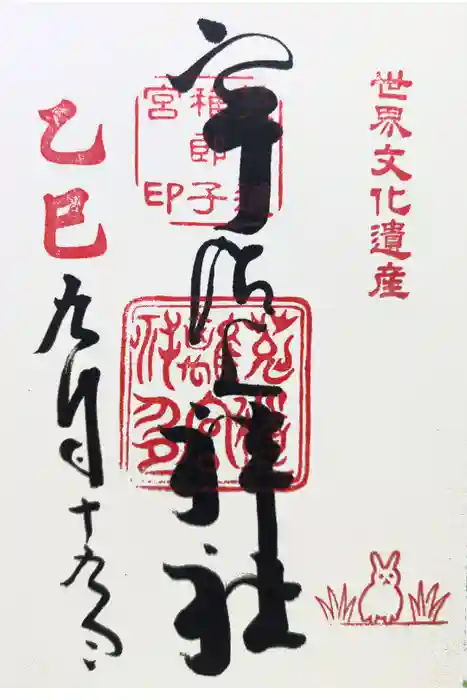 世界文化遺産
宇治上神社
稚郎子
宮印
乙巳
九月十九日